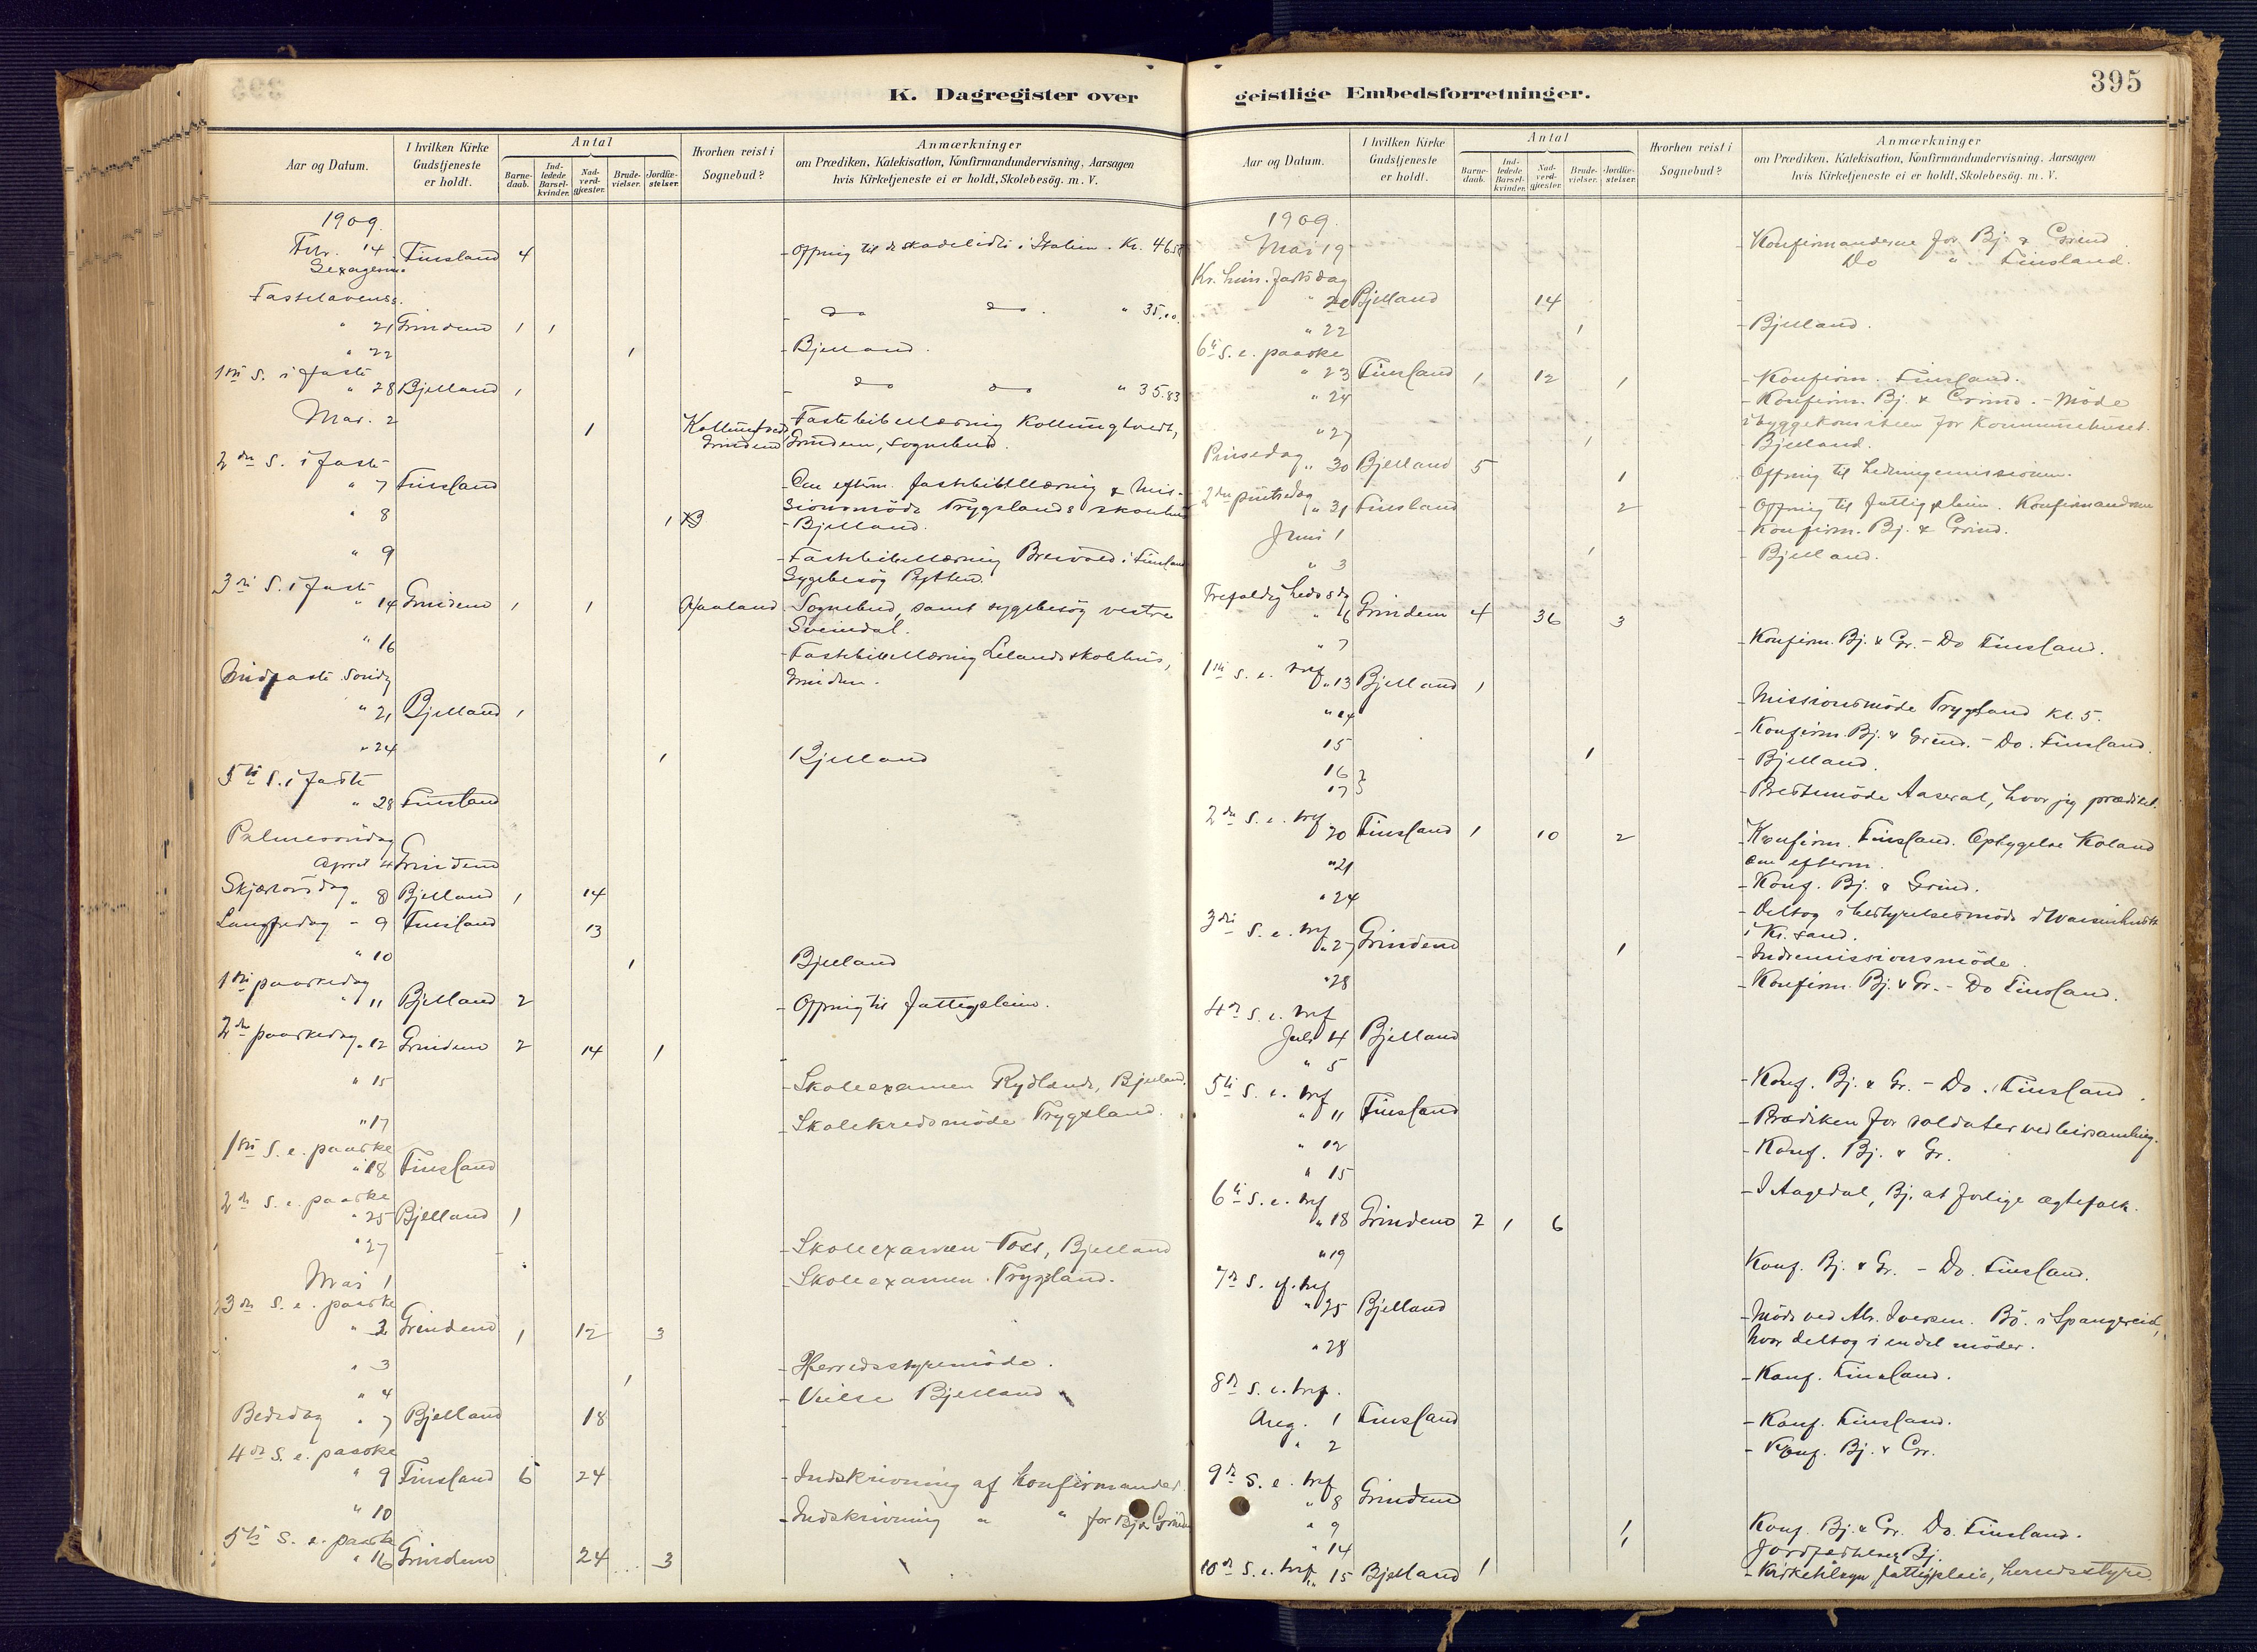 K. Dagregister over
Aar og Datum. I hvilken Kirke Gudstjeneste er holdt. Antal Barnedaab. Indledede Barselkvinder. Nadverdgjester. Brudevielser. Jordfæstelser. Hvorhen reist i Sognebud? Anmærkninger om Prædiken, Katekisation, Konfirmandundervisning, Aarsagen hvis Kirketjeneste ei er holdt, Skolebesög. m. V.
1909.
Febr. 14 Finsland 4 - Ofring til de skadelidte i Italien. Kr. 46.50
Sexagesima
Fastelavenss.
" 21 Grindem 1 1 - do do " 35.00.
" 22 1 - Bjelland.
1ste S. i faste
" 28 Bjelland 1 - do do " 35.83
Mar. 2 1 Grindem - Fastebibellæsning Kollungtveit,
Grindem, sognebud.
2den S. i faste
" 7 Finsland - Om efterm. fastebibellæsning & Mis-
sionsmöde Trygslands skolehus
" 8 1 - Bjelland.
" 9 - Fastebibellæsning Breivold i Finsland
Sygebesög Pytten.
3die S. i faste
" 14 Grindem 1 1 Haaland - Sognebud, samt sygebesög vestre
Sveindal.
" 16 - Fastebibellæsning Lelands skolehus,
Grindem.
Midfaste Sondg
" 21 Bjelland 1
" 24 1 Bjelland
5te S. i faste
" 28 Finsland
Palmesöndag
April 4 Grindem
Skjærtorsdag " 8 Bjelland 1 14
Langfredag " 9 Finsland 13
" 10 1 Bjelland
1ste paaskedag
" 11 Bjelland 2 - Ofring til fattigpleien.
2den paaskedag " 12 Grindem 2 14 1 -
" 15 - Skoleexamen Rydlands, Bjelland.
" 17 - Skolekredsmöde Trygsland.
1ste S. e. paaske
" 18 Finsland
2den S. e. paaske
" 25 Bjelland 1
" 27 - Skoleexamen Foss, Bjelland
Mai 1 - Skoleexamen Trygsland.
3die S. e. paaske
" 2 Grindem 1 12 3
" 3 - Herredsstyremöde.
" 4 1 - Vielse Bjelland
Bededag " 7 Bjelland 18 -
4de S. e. paaske
" 9 Finsland 6 24 - Indskrivning af konfirmander.
" 10 - Indskrivning " " for Bj & Grindem
5te S. e. paaske
" 16 Grindem 24 3
geistlige Embedsforretninger.
395
Aar og Datum. I hvilken Kirke Gudstjeneste er holdt. Antal Barnedaab. Indledede Barselkvinder. Nadverdgjester. Brudevielser. Jordfæstelser. Hvorhen reist i Sognebud? Anmærkninger om Prædiken, Katekisation, Konfirmandundervisning, Aarsagen hvis Kirketjeneste ei er holdt, Skolebesög. m. V.
1909.
Mai 19 - Konfirmanderne for Bj. & Grind.
Do " Finsland.
Kr. him. fartsdag
" 20 Bjelland 14 -
" 22 1 - Bjelland.
6te S. e. paaske
" 23 Finsland 1 12 1 - Konfirm. Finsland.
" 24 - Konfirm. Bj. & Grind. - Möde
i byggekomiteen for Kommunehuset.
" 27 1 - Bjelland.
Pinsedag " 30 Bjelland 5 1 - Ofring til hedningemissionen.
2den pintsedag " 31 Finsland 2 - Ofring til fattigpleien. Konfirmanderne
Juni 1 - Konfirm. Bj. & Grind.
" 3 1 - Bjelland.
Trefoldighedssdg
" 6 Grindem 4 36 3
" 7 - Konfirm. Bj. & Gr. - Do Finsland.
1ste S. e. tref
" 13 Bjelland 1
" 14 - Missionsmöde Trygsland kl. 5.
15 - Konfirm. Bj. & Grind. - Do. Finsland.
16 1 - Bjelland.
17 - Prestemöde Aaseral, hvor jeg prædiket.
2den S. e. tref
20 Finsland 1 10 2 - Konfirm. Finsland. Opbyggelse Koland
om efterm.
" 21 - Konf. Bj. & Grind.
" 24 - Deltog i bestyrelsesmöde i Waisenhuset
i Kr. sand.
3die S. e. tref
" 27 Grindem 1 - Indremissionsmöde.
" 28 - Konfirm. Bj. & Gr. - Do Finsland.
4de S. e. tref
Juli 4 Bjelland
" 5 - Konf. Bj. & Gr. - Do. Finsland.
5te S. e. tref
" 11 Finsland - Prædiken for soldater ved leirsamling.
" 12 - Konf. Bj. & Gr.
" 15 - I Aagedal, Bj. at forlige ægtefolk.
6te S. e. tref
" 18 Grindem 2 1 6
" 19 Konf. Bj. & Gr. - Do. Finsland.
7de S. ef. tref
" 25 Bjelland - Möde ved Iversen. Bö. i Spangereid,
" 28 hvor deltog i endel möder.
- Konf. Finsland.
8de S. e. tref.
Aug. 1 Finsland - Konf. Finsland.
" 2 - Konf. Bj. & Gr.
9de S. e. tref
" 8 Grindem
" 9 1 Konf. Bj. & Gr. Do. Finsland.
" 14 1 Jordfæstelse Bj.
10de S. e. tref " 15 Bjelland 1 - Kirketilsyn, fattigpleie, herredsstyre.